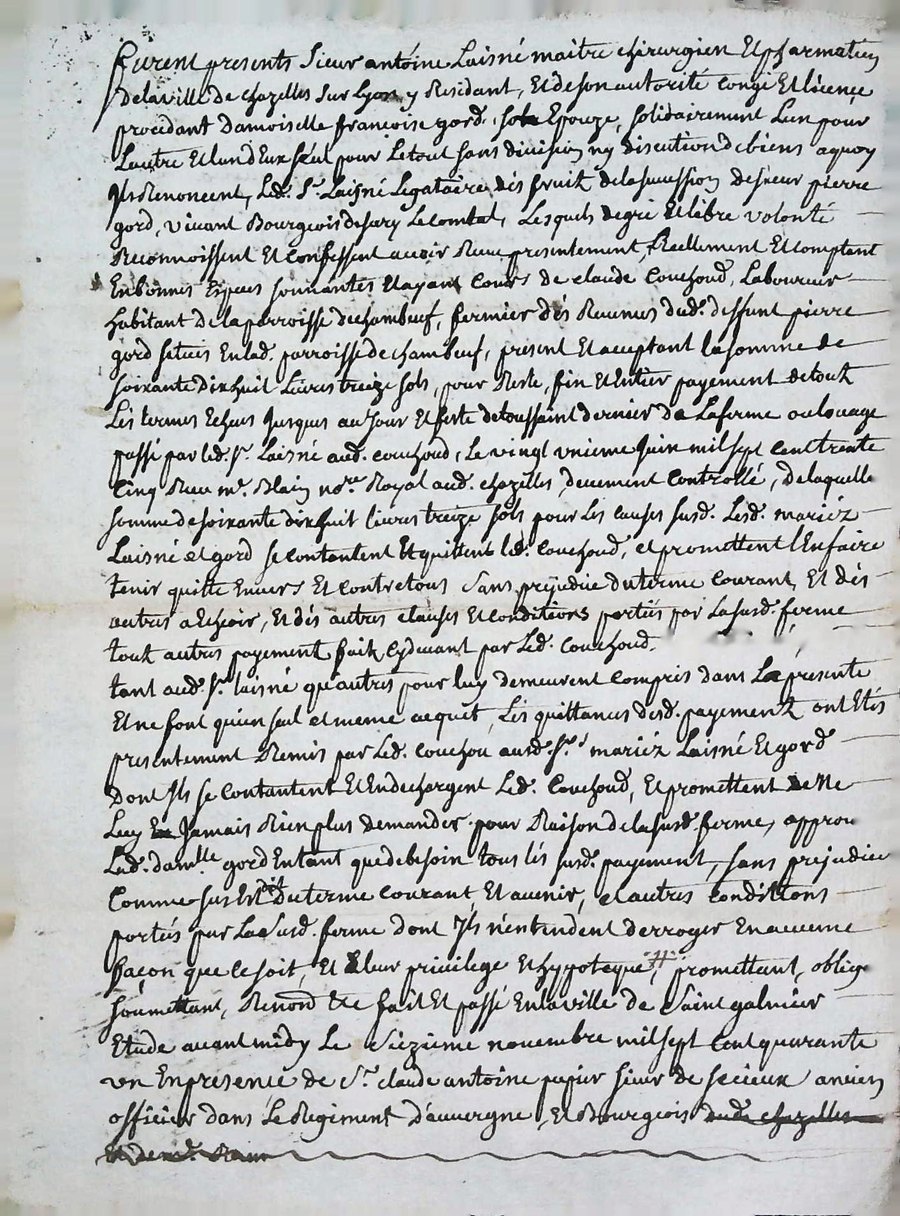 furent presents Sieur antoine Laisné maitre chirurgien Et pharmatien
de la ville de chazelles sur Lyon y Residant, Et de son autorité congé Et licence
procedant damoiselle francoise gord. son Epouze, solidairement L'un pour
L'autre Et l'un d'Eux seul pour Le tout sans division ny discution de biens a quoy
Ils Renoncent, Led. Sr. Laisné Legataire dés fruits de la succession de sieur pierre
gord, vivant Bourgeois de sury Le comtal, Lesquels de gré Et libre volonté
Reconnoissent Et confessent avoir Receu presentement, Reellement Et comptant
En bonnes Especes sonnantes Et ayant Cours de claude Couchoud, Laboureur
habitant de la parroisse de chambeuf, fermier dés Revenus dud. deffunt pierre
gord situés En lad. parroisse de chambeuf, present Et acceptant la somme de
soixante dix huit Livres treize sols, pour Reste, fin Et Entier payement de touts
Lés termes Echus Jusques au Jour Et feste de toussaint dernier de La ferme ou louage
passé par led. Sr. Laisné aud. couchoud, Le vingt unieme Juin mil sept cent trente
Cinq Receu me. Blain nore. Royal aud. chazelles, deuement Controllé, de laquelle
somme de soixante dix huit livres treize sols pour Les causes susd. Lesd. mariéz
Laisné et gord se contentent Et quittent led. Couchoud, et promettent l'En faire
tenir quitte Envers Et contre tous sans prejudice du terme courant, Et dés
autres a Echeoir, Et dés autres clauses Et conditions portées par La susd. ferme
tout autres payement fait cy devant par Led. Couchoud.
tant aud. Sr. laisné qu'autres pour luy demeurent Compris dans La présente
Et ne font qu'un seul et meme acquet, Lés quittances desd. payements ont Etés
presentement Remis par Led. Couchou ausd. Srs. mariéz Laisné Et gord
dont Ils se Contantent Et En dechargent Led. Couchoud, Et promettent de Ne
Luy Jamais Rien plus demander pour Raison de la susd. ferme, approu
Led. damlle. gord En tant que de besoin tous lés susd. payement, sans prejudice
Comme sus Est dit du terme courant, Et avenir, et autres conditions
portées par La susd. ferme dont Ils n'entendent derroger En aucune
façon que ce soit, Et a leur privilege Et hypoteque, promettant, oblig
soumettant, Renond. Etc fait Et passé En la ville de Saint galmier
Etude avant midy Le séizieme novembre mil sept Cent quarante
un En presence de Sr. claude antoine papier sieur de secieux ancien
officier dans Le Regiment d'auvergne, Et Bourgeois dud. chazelles